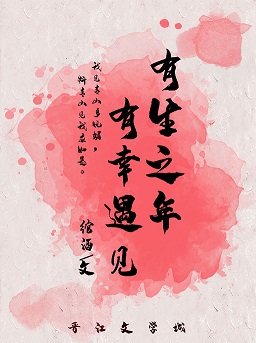 有生之年
有幸遇见
我见青山多妩媚，
料青山见我应如是。
绾酒 文
晋江文学城